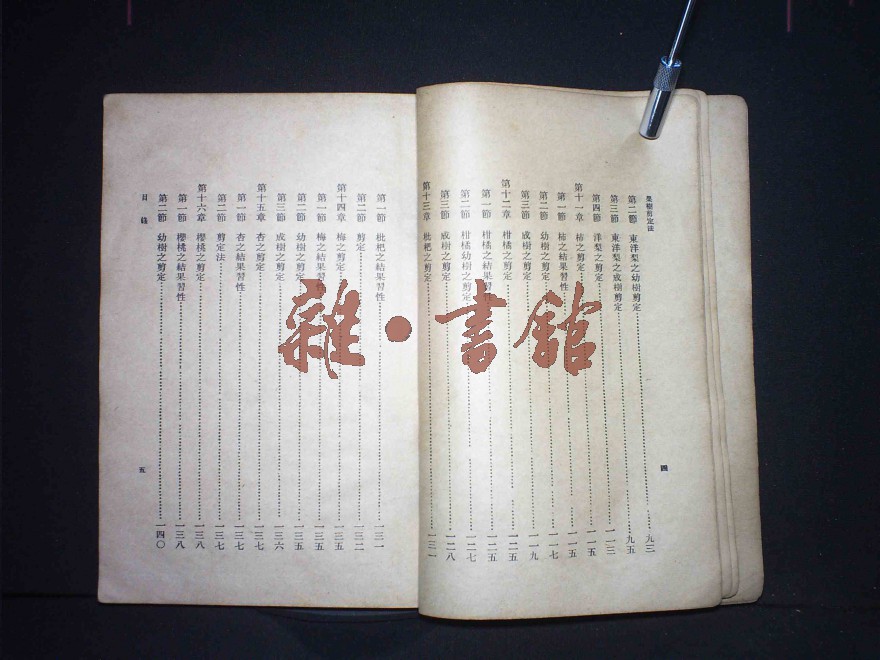 果樹剪定法
第二節 東洋梨之幼樹剪定……九三
第三節 東洋梨之成樹剪定……九五
第四節 洋梨之剪定……一一三
第十一章 柿之剪定……一一五
第一節 柿之結果習性……一一五
第二節 幼樹之剪定……一一七
第三節 成樹之剪定……一一九
第十二章 柑橘之剪定……一二五
第一節 柑橘之結果習性……一二五
第二節 柑橘幼樹之剪定……一二七
第三節 成樹之剪定……一二八
第十三章 枇杷之剪定……一三一
四
第一節 枇杷之結果習性……一三一
第二節 剪定……一三二
第十四章 梅之剪定……一三五
第一節 梅之結果習性……一三五
第二節 幼樹之剪定……一三五
第三節 成樹之剪定……一三六
第十五章 杏之剪定……一三七
第一節 杏之結果習性……一三七
第二節 剪定法……一三七
第十六章 櫻桃之剪定……一三八
第一節 櫻桃之結果習性……一三八
第二節 幼樹之剪定……一四〇
目錄
五
雜·書館